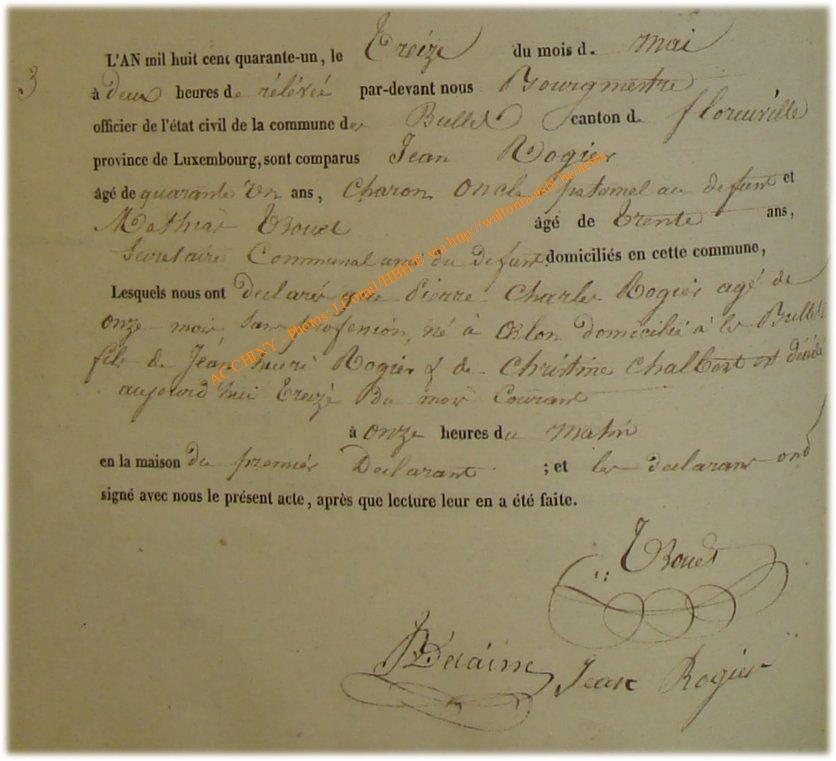 3
L'AN mil huit cent quarante-un, le Treize du mois d. mai
à deux heures de rélévée par-devant nous Bourgmestre
officier de l'état civil de la commune des Bulles canton d. florenville
province de Luxembourg, sont comparus Jean Rogier
âgé de quarante un ans, Charon oncle paternel au defunt et
Mathias âgé de trente ans,
Secretaire Communal ami du defunt domiciliés en cette commune,
Lesquels nous ont declaré que Pierre Charles Rogier agé de
onze mois sans profession, né à domicilié à les Bulles
fils de Jean henri Rogier & de Christine est décédé
aujourd'hui treize du mois Courant
à onze heures du matin
en la maison du premier Declarant ; et les declarans ond
signé avec nous le présent acte, après que lecture leur en a été faite.
Jean Rogier
AGCHINY - Photos J.Cornil/HBH © via http://